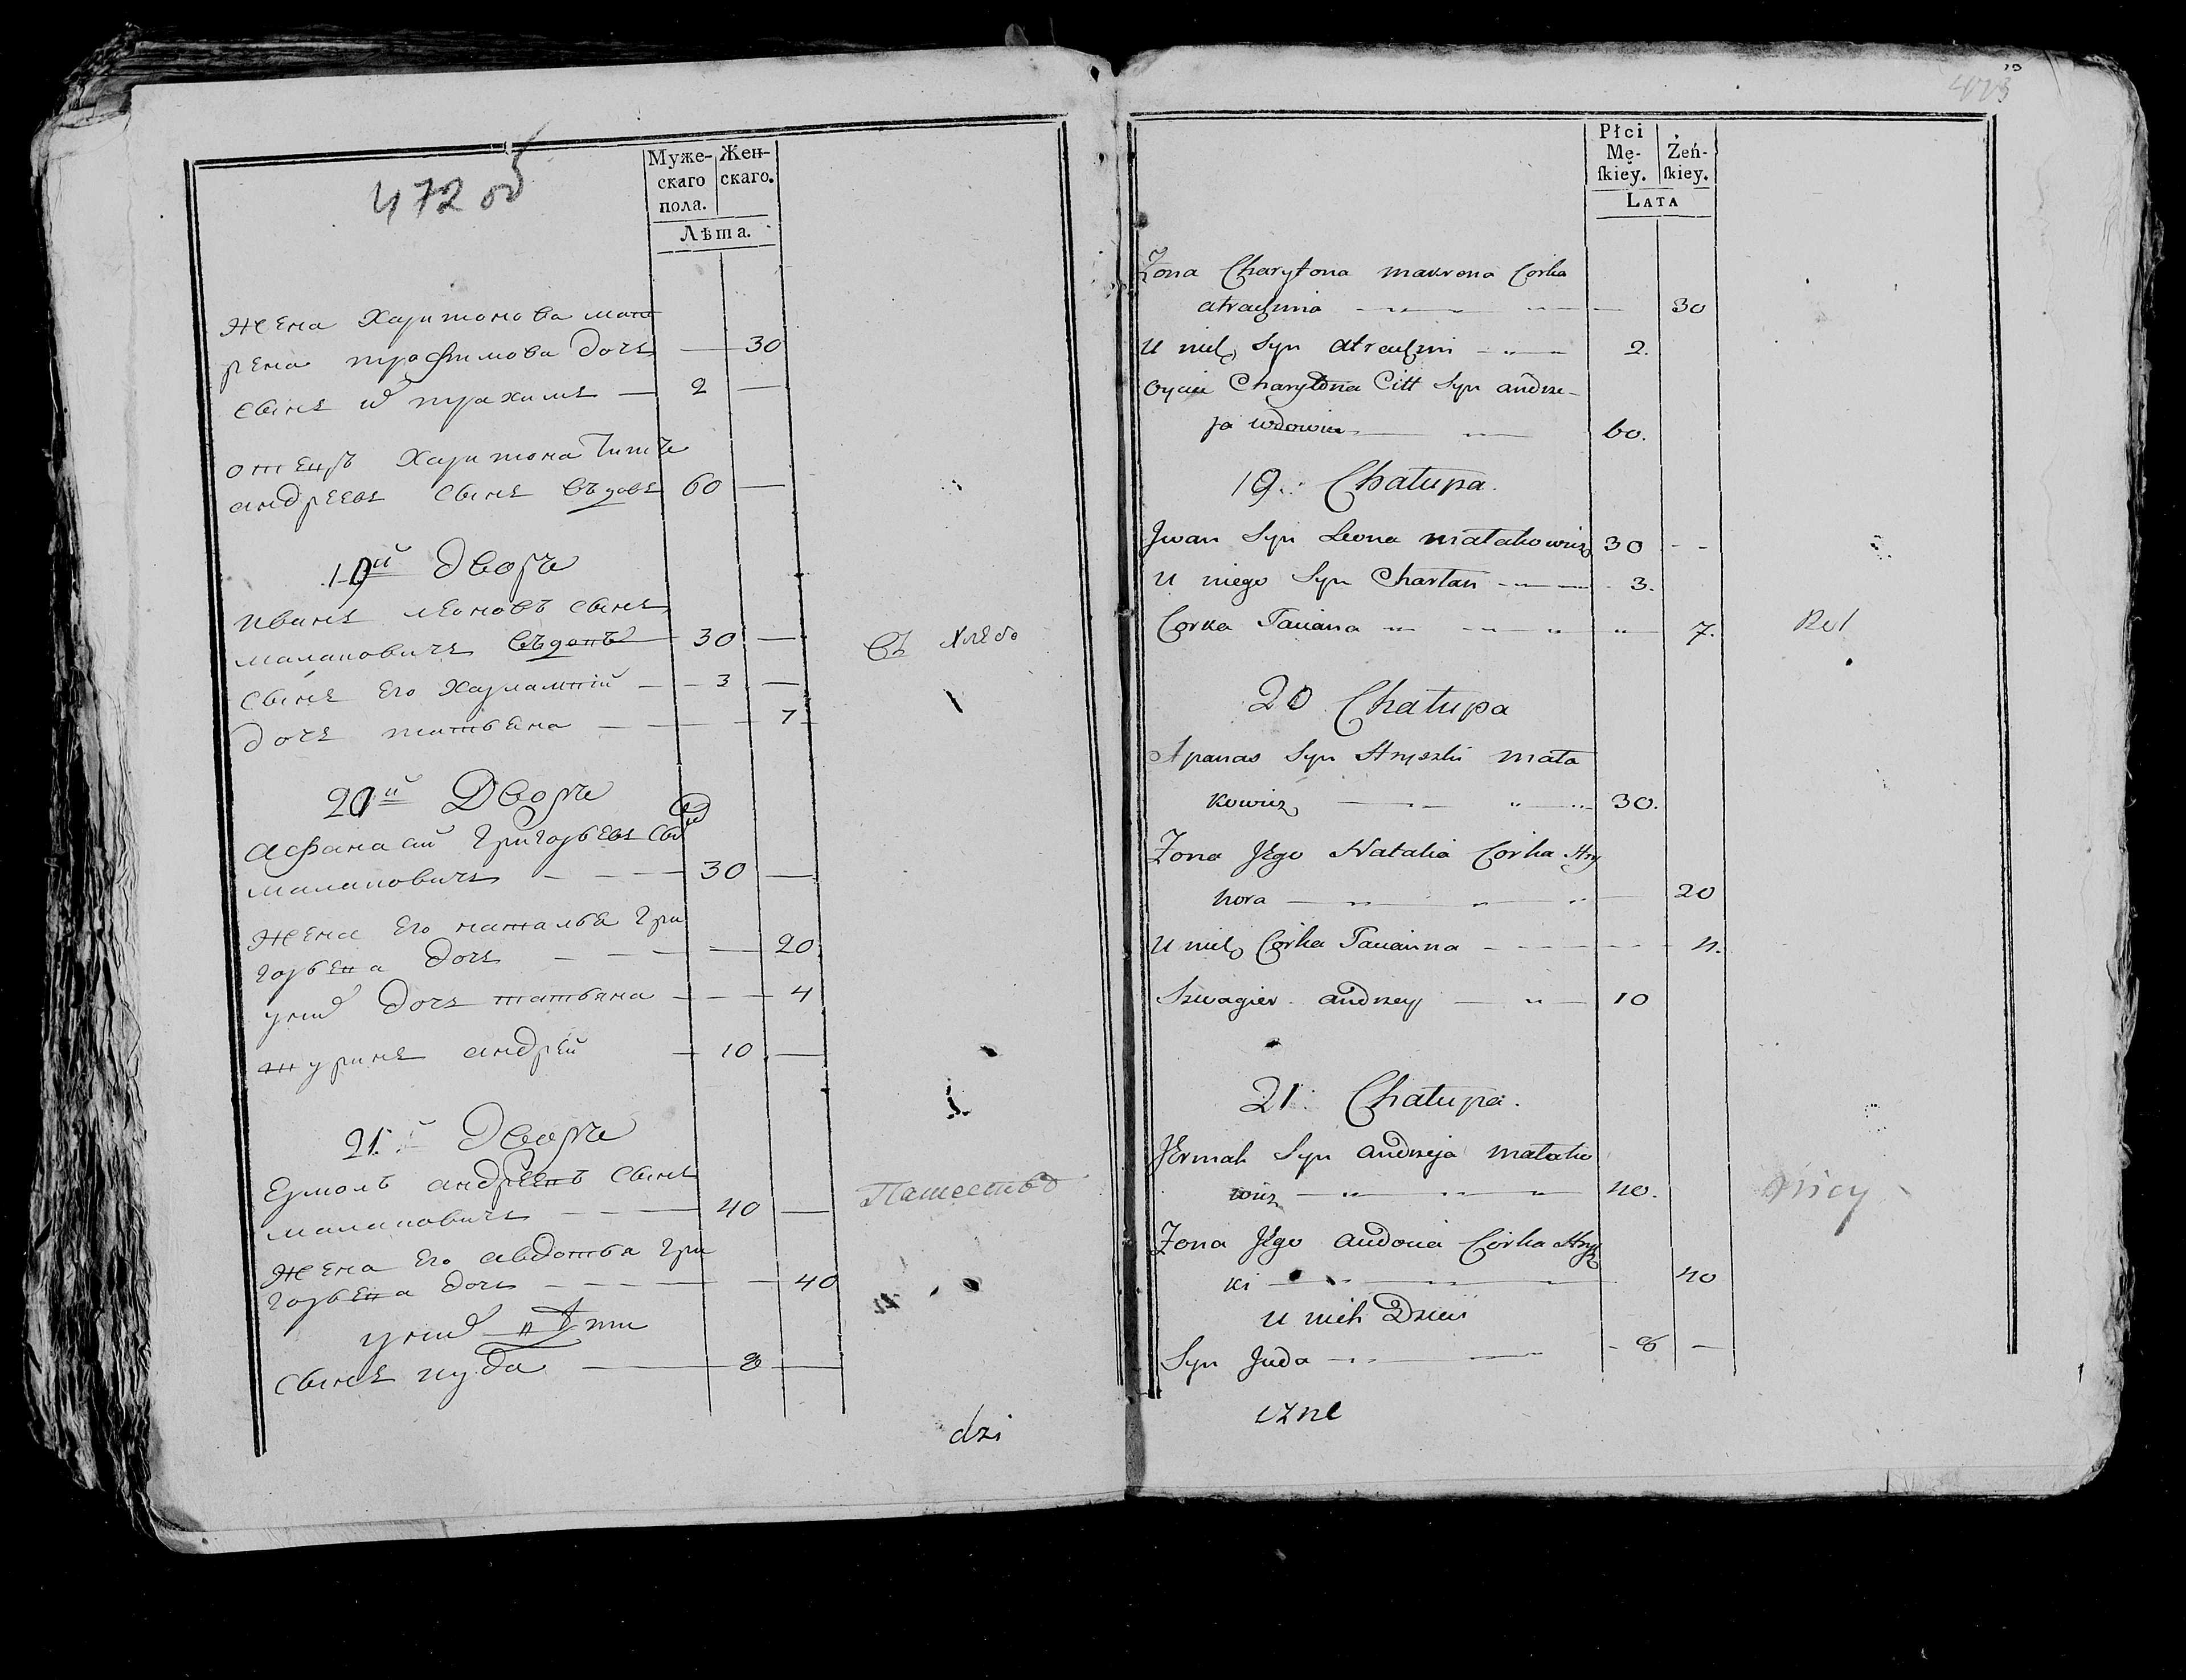 472 об
Муже-
скаго
пола.
Жен-
скаго.
Лѣта.
Жена Харитонова мат
рена трофимова дочь — 30
Сынъ трахимъ — 2 —
отецъ Харитона Титъ
андреевъ сынъ въдовъ 60 —
19й Дворъ
иванъ леоновъ сынъ
малаковичъ въдовъ 30 —
Сынъ Его Харлампий — 3 —
дочъ татьяна — 7
20й Дворъ
афанасий григорьевъ сынъ
малаковичъ — 30 —
Жена Его наталья гри
горьева дочъ — 20
у нихъ дочъ татьяна — 4
шуринъ андрѣй — 10 —
21й Дворъ
Ермолъ андреевъ сынъ
малаковичъ — 40 —
Жена Его авдотья гри
горьева дочъ — 40
у нихъ дѣти
сынъ иуда — 8 —
Съ хлебо
Пашеств
dzi
473
Płci
Mę-
ſkiey.
Żeń-
ſkiey.
Lata
Zona Charytona mawrona Corka
atrachima — 30
U nich Syn atrachim — 2.
Oyciec Charytona Citt Syn andrze-
ja wdowiec — 60.
19. Chatupa.
Jwan Syn Leona matakowicz 30 - -
U niego Syn Chartan — 3.
Corka Taciana — 7.
20 Chatupa
Apanas Syn Hryszki mata
kowicz — 30.
Zona Jego Natalia Corka Hry
hora — 20
U nich Corka Tacianna — 4.
Szwagier andrzey — 10
21 Chatupa.
Jermak Syn andrzeja matako
wicz — 40.
Zona Jego audocia Corka Hrysz
ki — 40
U nich Dzieci
Syn Juda — 8 —
Rol
nicy
czne